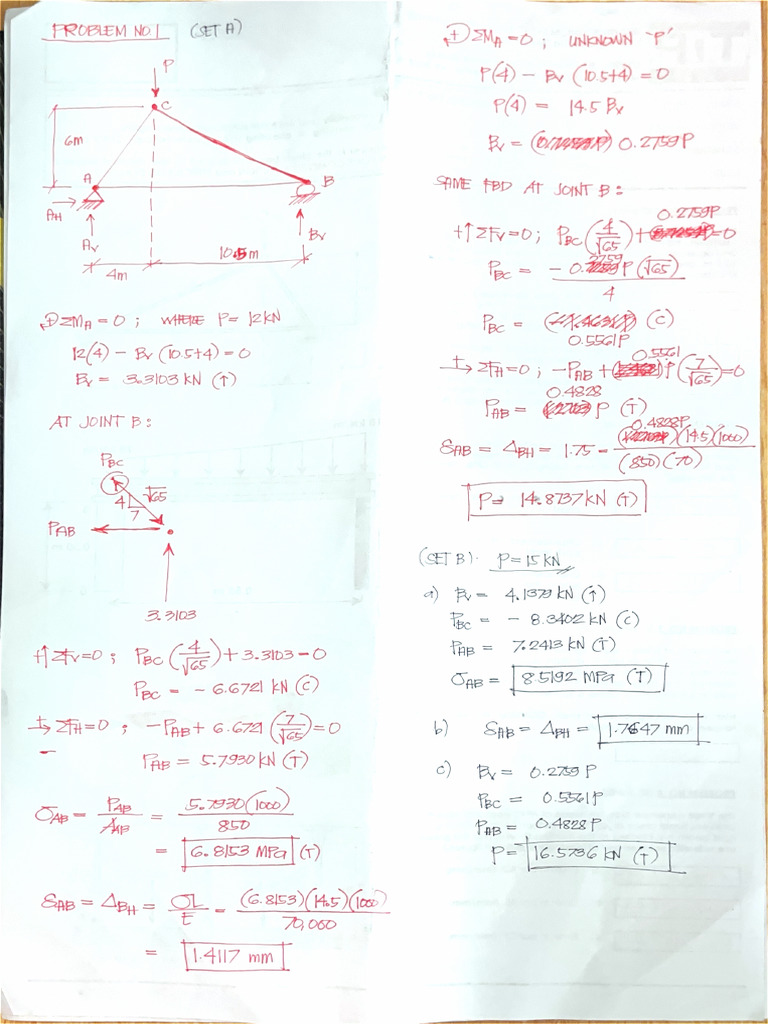 PROBLEM NO.1 (SET A)
P
C
6m
A
B
AH
AV
BV
4m
10.5m
ΣMA = 0 ; WHERE P = 12 KN
12(4) - BV (10.5+4) = 0
BV = 3.3103 KN (↑)
AT JOINT B:
PBC
4
√65
7
PAB
3.3103
+↑ΣFV = 0 ; PBC (4/√65) + 3.3103 = 0
PBC = - 6.6721 KN (C)
+→ ΣFH = 0 ; -PAB + 6.6721 (7/√65) = 0
PAB = 5.7930 KN (T)
σAB = PAB/AAB = 5.7930(1000)/850
= 6.8153 MPa (T)
δAB = ΔBH = σL/E = (6.8153)(14.5)(1000)/70,000
= 1.4117 mm
ΣMA = 0 ; UNKNOWN "P"
P(4) - BV (10.5+4) = 0
P(4) = 14.5 BV
BV = 0.2759P
SAME FBD AT JOINT B:
+↑ΣFV = 0 ; PBC (4/√65) + 0.2759P = 0
PBC = - 0.2759 P (√65)/4
PBC = 0.5561P (C)
+→ ΣFH = 0 ; -PAB + 0.5561 P (7/√65) = 0
PAB = 0.4828 P (T)
δAB = ΔBH = 1.75 = 0.4828P (14.5)(1000)/(850)(70)
P = 14.8737 KN (T)
(SET B). P = 15 KN
a) BV = 4.1379 KN (↑)
PBC = - 8.3402 KN (C)
PAB = 7.2413 KN (T)
σAB = 8.5192 MPa (T)
b) δAB = ΔBH = 1.7647 mm
c) BV = 0.2759 P
PBC = 0.5561P
PAB = 0.4828P
P = 16.5736 KN (T)